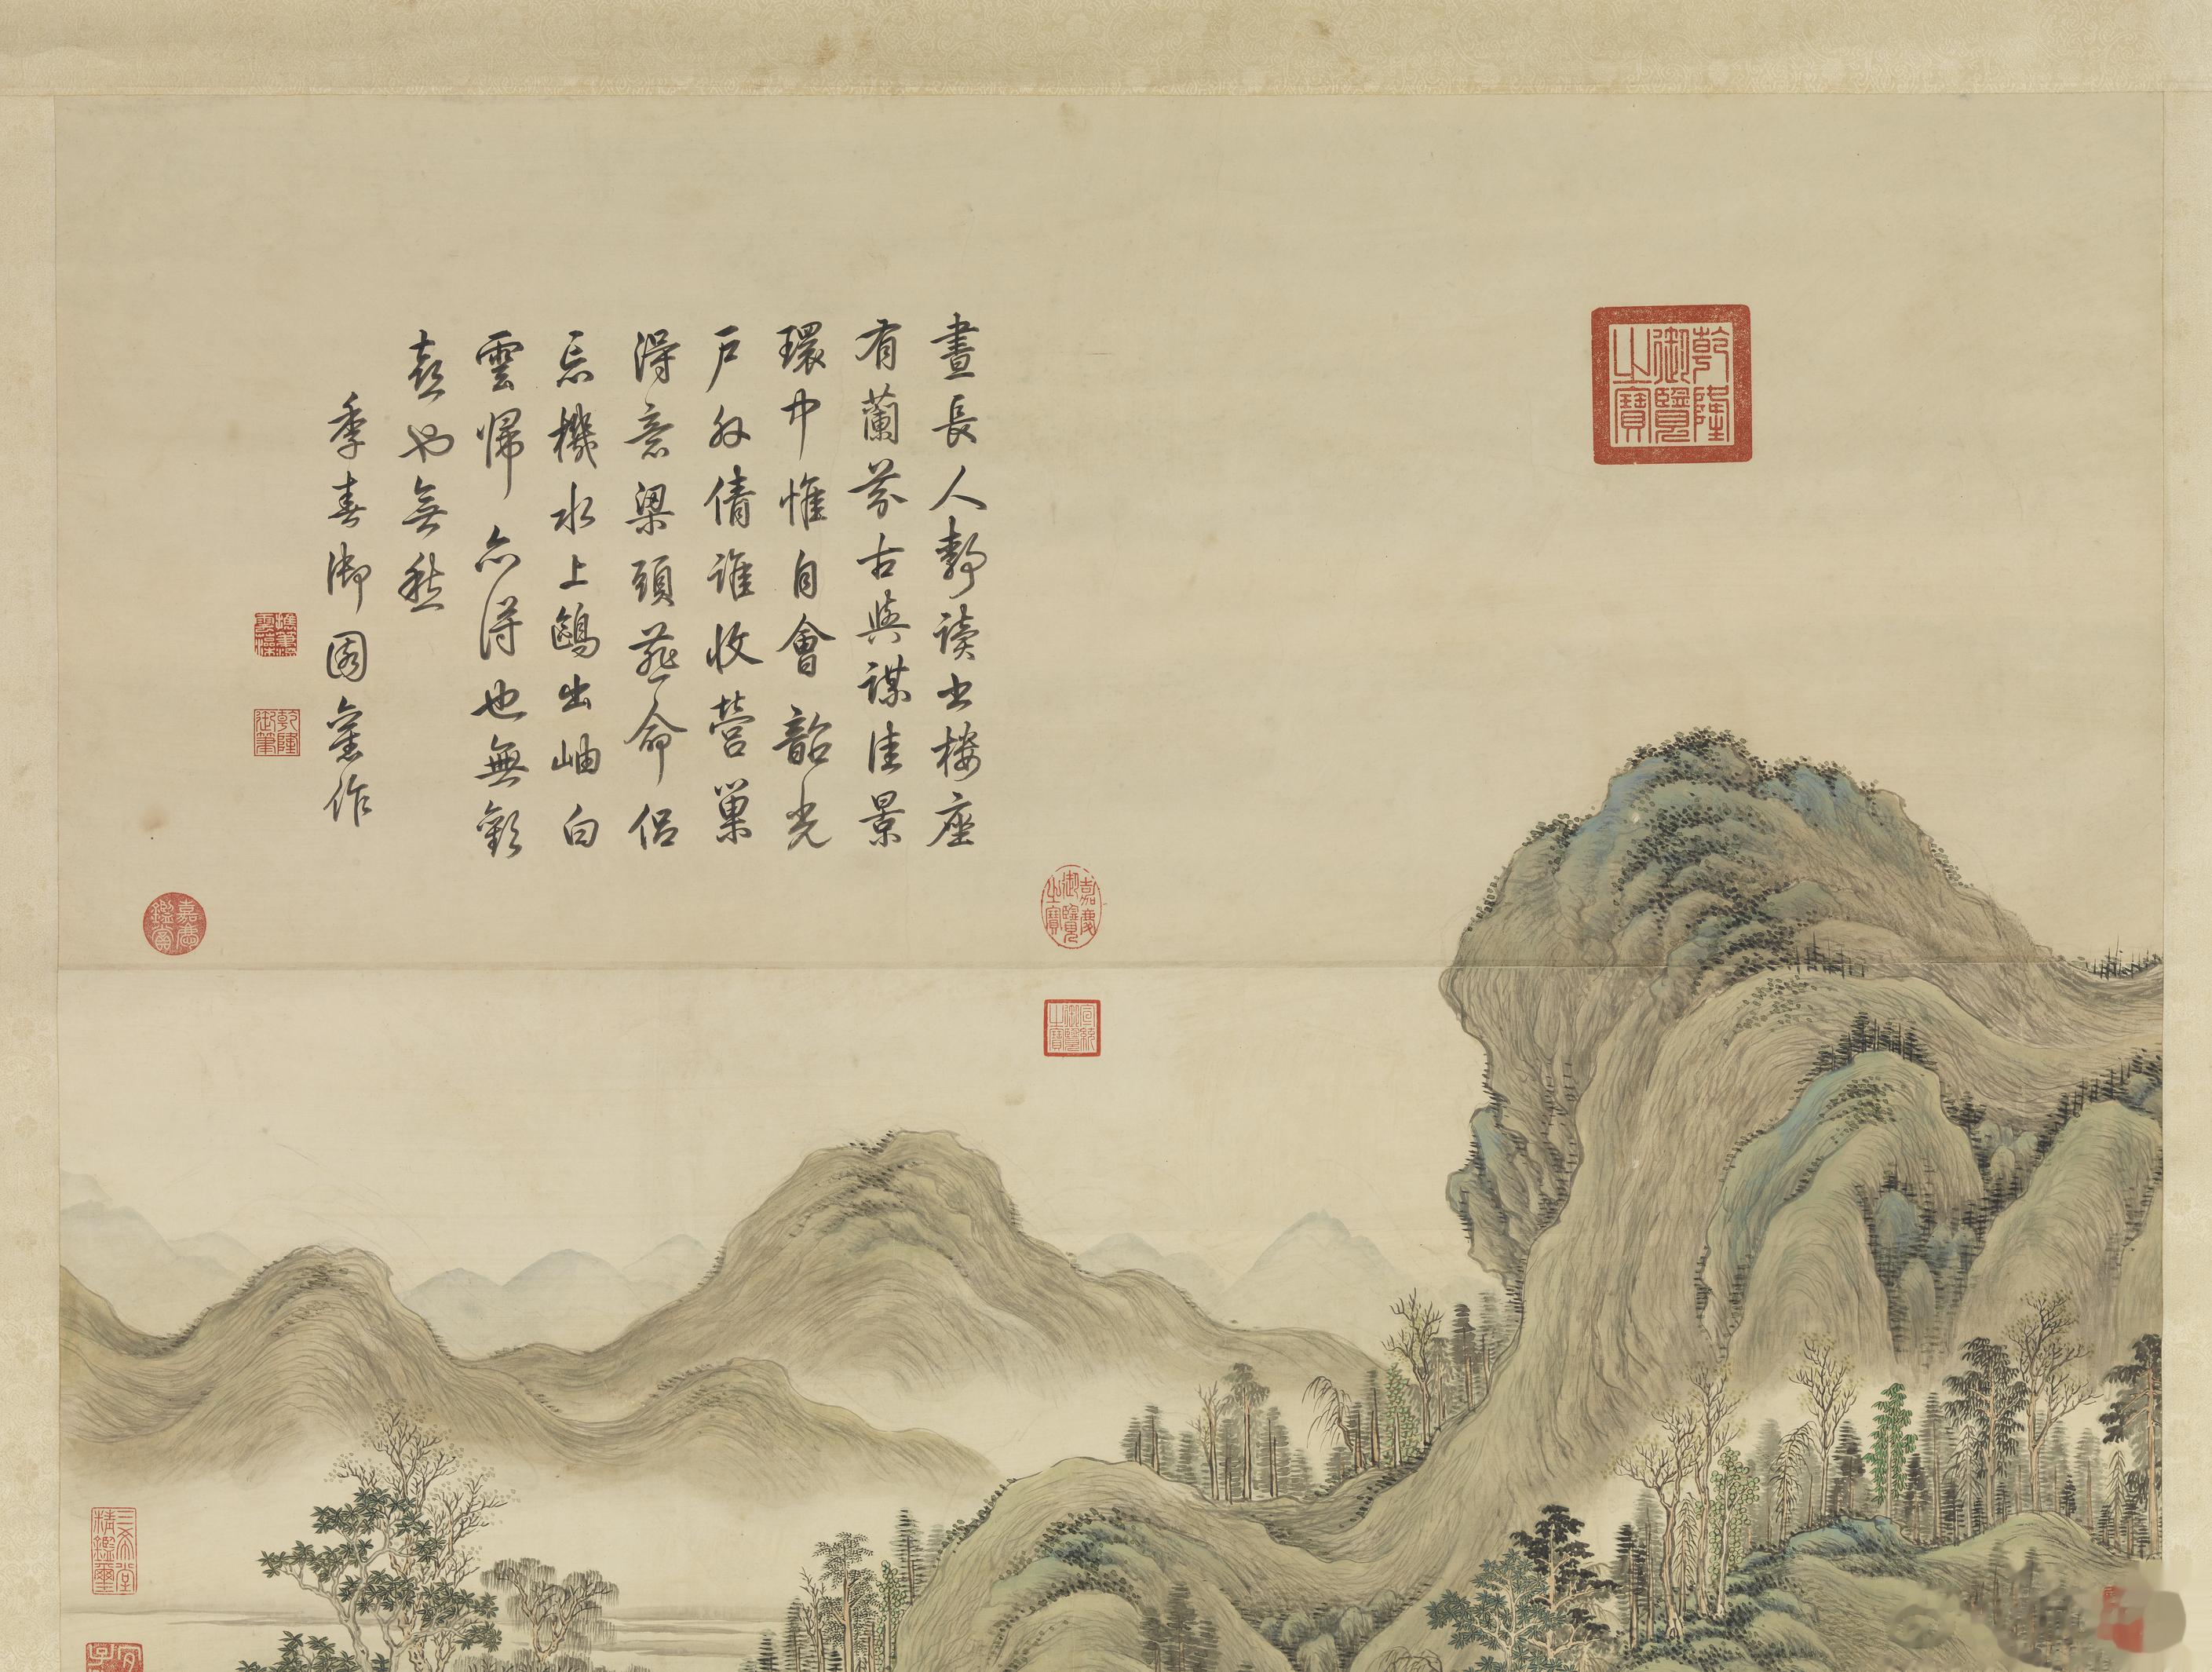 乾隆御覽之寶
晝長人靜讀書樓座
有蘭芬古與謀佳景
環中惟自會韶光
戶外倩誰收營巢
得意梁頭燕命侶
忘機水上鷗出岫白
雲歸亦得也無歡
喜也無愁
季春御園舊作
乾隆御筆
嘉慶御覽之寶
嘉慶鑑賞
宣統御覽之寶
三希堂精鑑璽